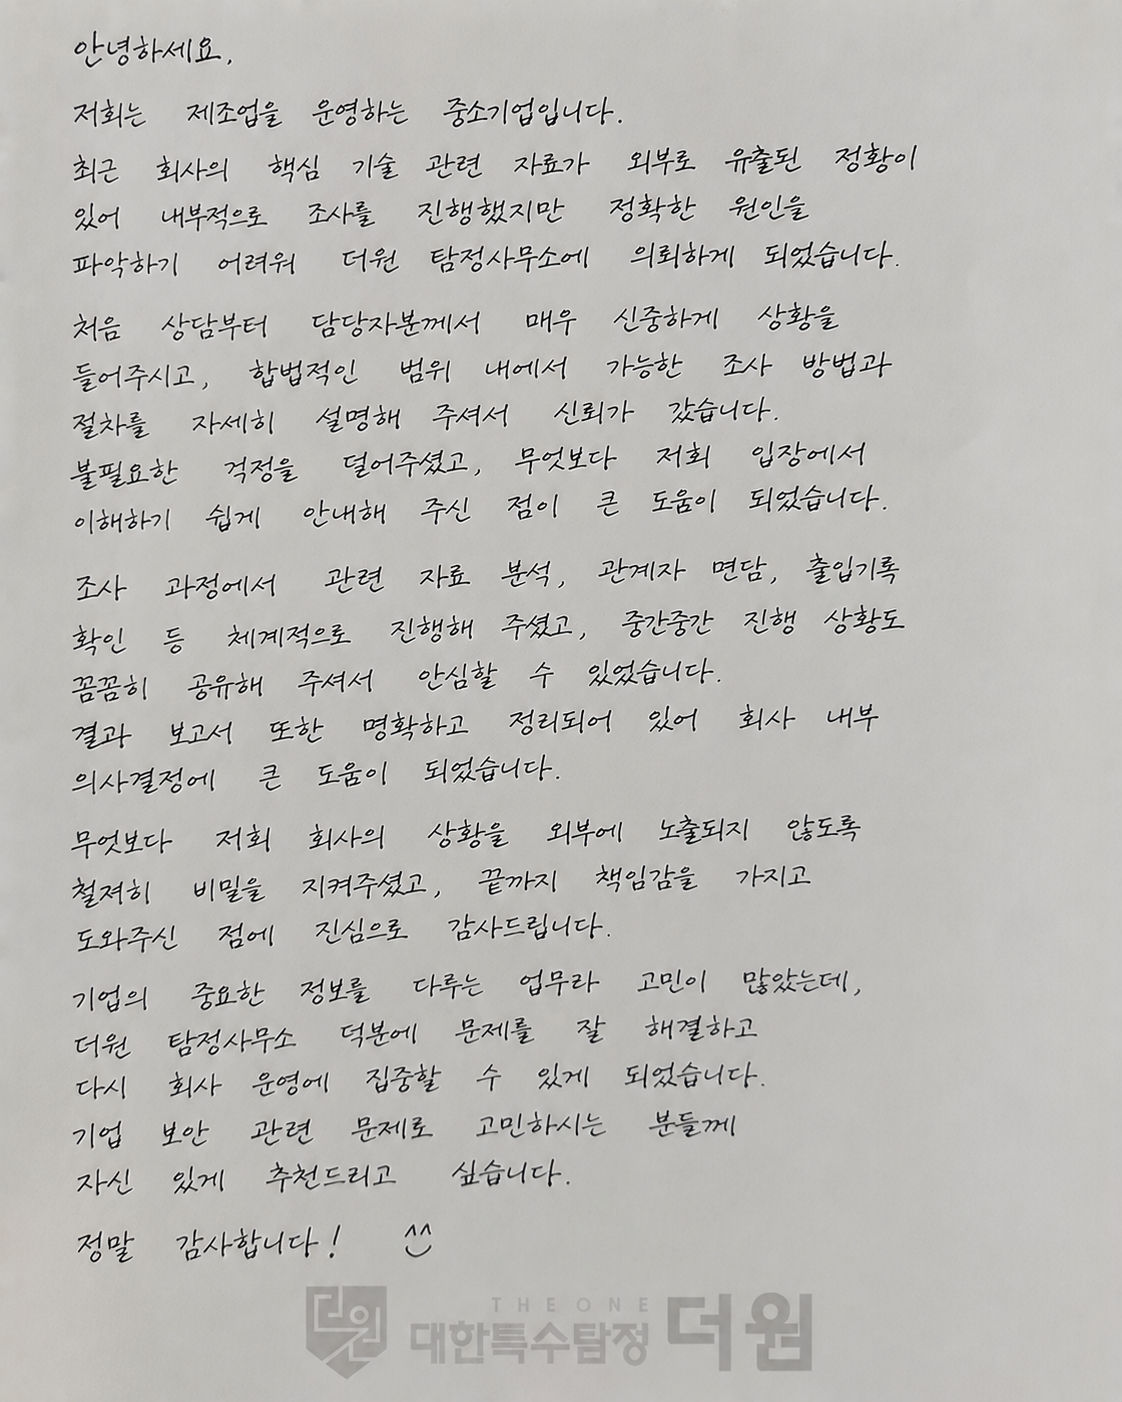 안녕하세요,
저희는 제조업을 운영하는 중소기업입니다.
최근 회사의 핵심 기술 관련 자료가 외부로 유출된 정황이
있어 내부적으로 조사를 진행했지만 정확한 원인을
파악하기 어려워 더원 탐정사무소에 의뢰하게 되었습니다.
처음 상담부터 담당자분께서 매우 신중하게 상황을
들어주시고, 합법적인 범위 내에서 가능한 조사 방법과
절차를 자세히 설명해 주셔서 신뢰가 갔습니다.
불필요한 걱정을 덜어주셨고, 무엇보다 저희 입장에서
이해하기 쉽게 안내해 주신 점이 큰 도움이 되었습니다.
조사 과정에서 관련 자료 분석, 관계자 면담, 출입기록
확인 등 체계적으로 진행해 주셨고, 중간중간 진행 상황도
꼼꼼히 공유해 주셔서 안심할 수 있었습니다.
결과 보고서 또한 명확하고 정리되어 있어 회사 내부
의사결정에 큰 도움이 되었습니다.
무엇보다 저희 회사의 상황을 외부에 노출되지 않도록
철저히 비밀을 지켜주셨고, 끝까지 책임감을 가지고
도와주신 점에 진심으로 감사드립니다.
기업의 중요한 정보를 다루는 업무라 고민이 많았는데,
더원 탐정사무소 덕분에 문제를 잘 해결하고
다시 회사 운영에 집중할 수 있게 되었습니다.
기업 보안 관련 문제로 고민하시는 분들께
자신 있게 추천드리고 싶습니다.
정말 감사합니다! ^^
더원 THEONE
대한특수탐정 더원